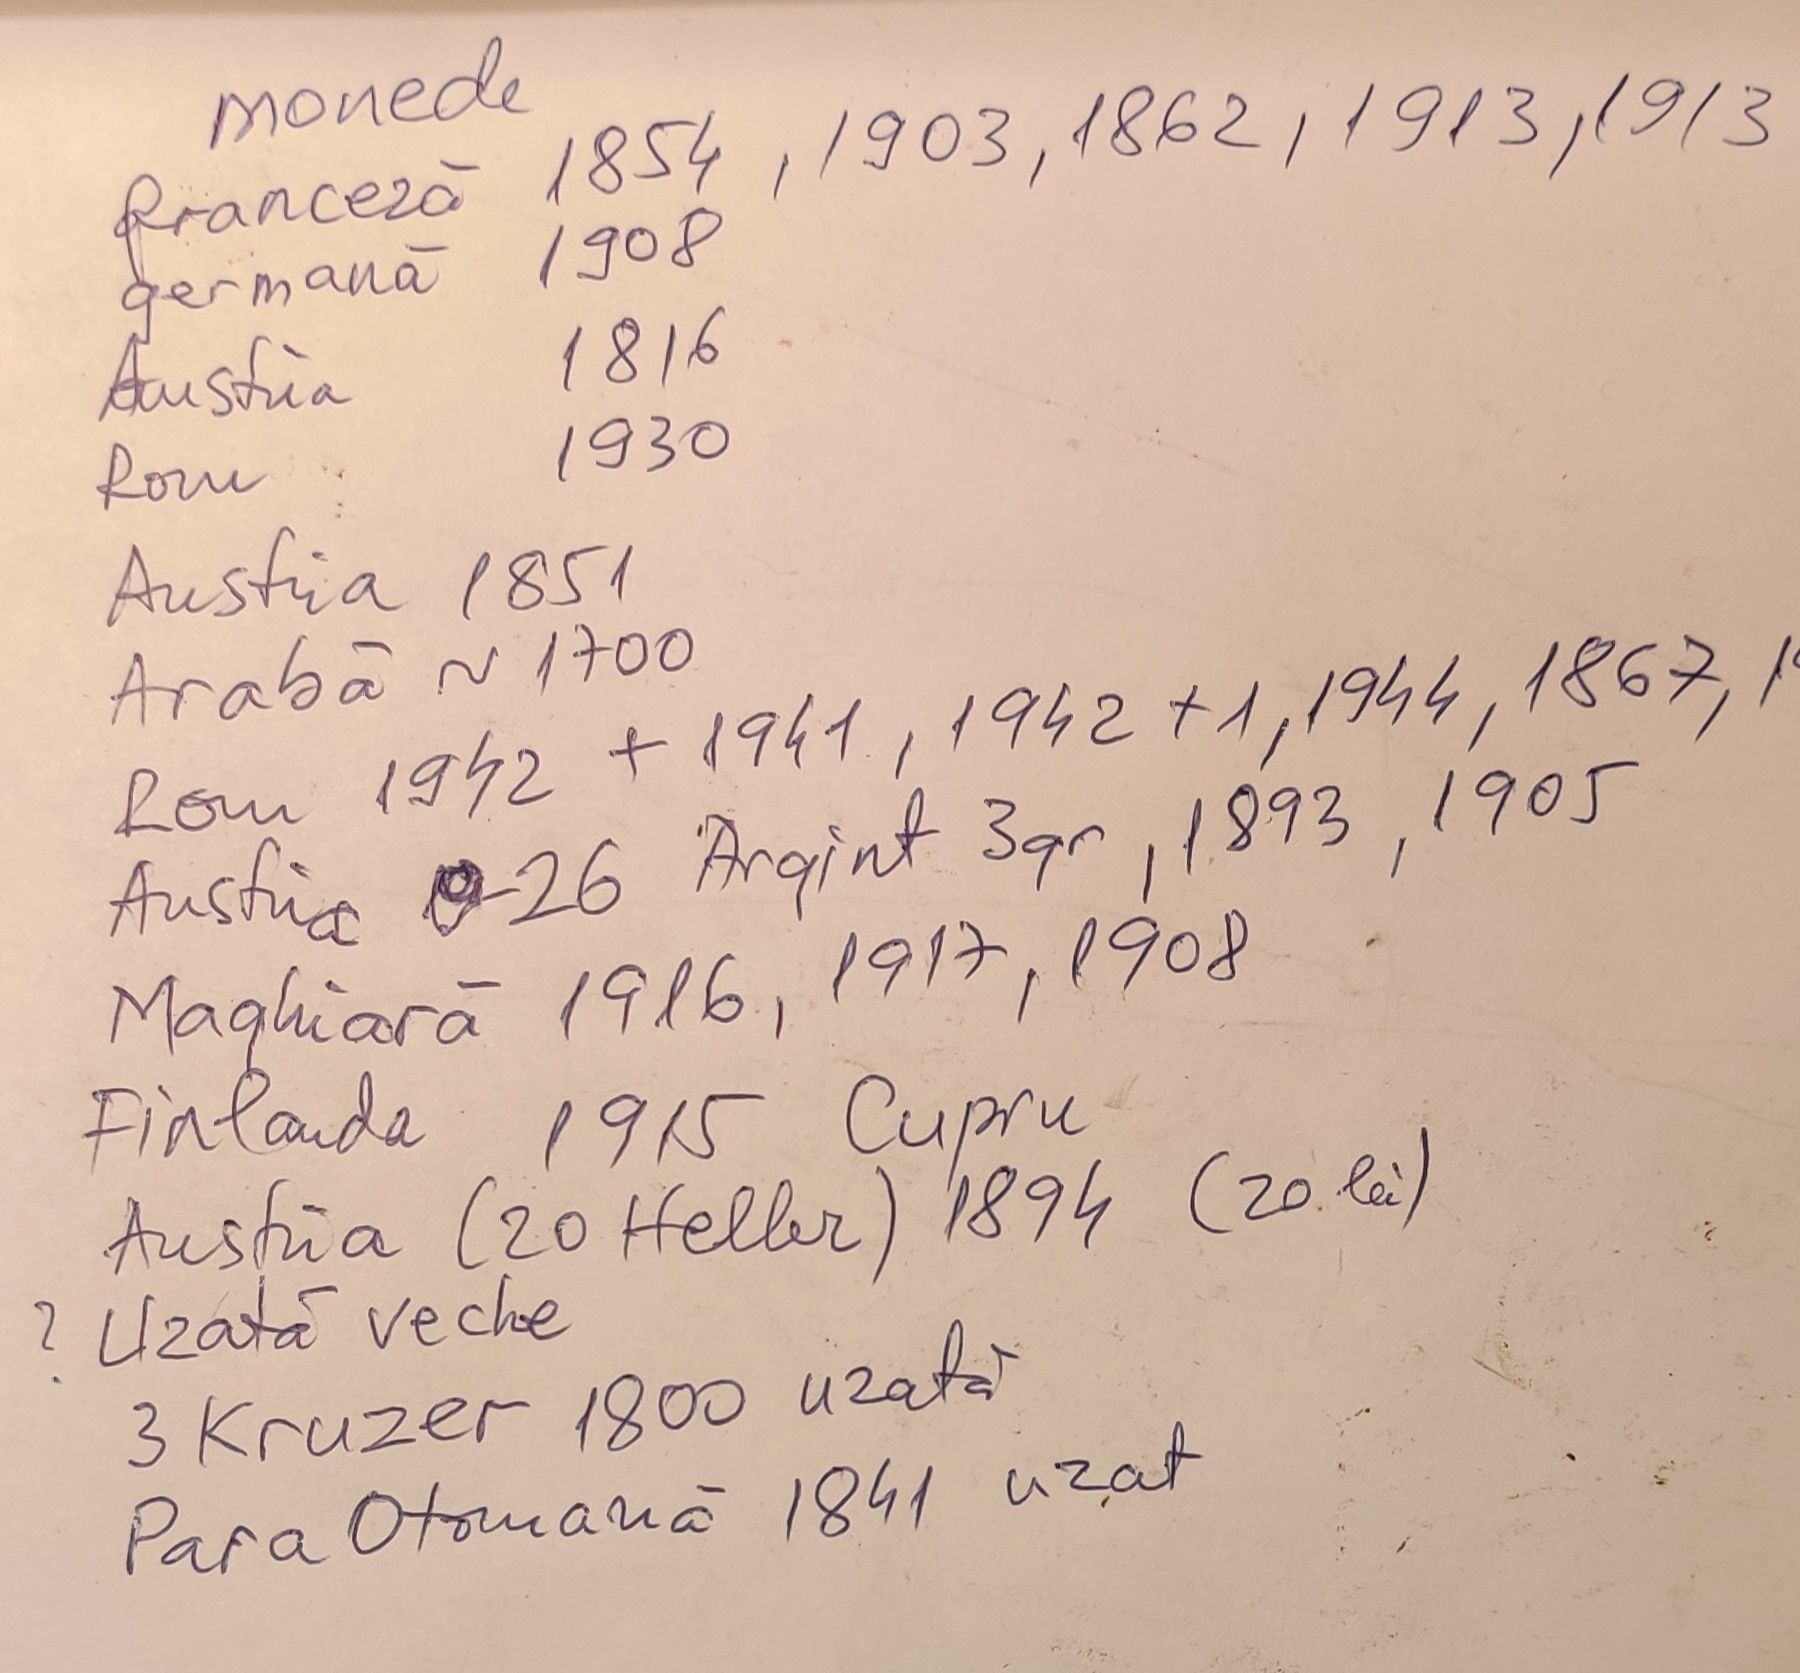 monede
franceză 1854, 1903, 1862, 1913, 1913
germană 1908
Austria 1816
Rom 1930
Austria 1851
Arabă ~ 1700
Rom 1942 + 1941, 1942 +1, 1944, 1867,
Austria -26 Argint 3gr, 1893, 1905
Maghiară 1916, 1917, 1908
Finlanda 1915 Cupru
Austria (20 Heller) 1894 (20 lei)
? Uzată veche
3 Kruzer 1800 uzată
Para Otomană 1841 uzat